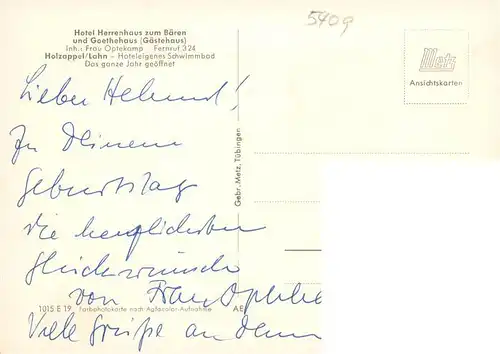 5409
Hotel Herrenhaus zum Bären
und Goethehaus (Gästehaus)
Inh.: Frau Optekamp Fernruf 324
Holzappel/Lahn – Hoteleigenes Schwimmbad
Das ganze Jahr geöffnet
Metz
Ansichtskarten
Lieber Helmut!
Zu Deinem
Geburtstag
die herzlichsten
Glückwünsche
von Frau
Viele Grüße an
Gebr. Metz, Tübingen
1015 E 19 Farbphotokarte nach Agfacolor-Aufnahme